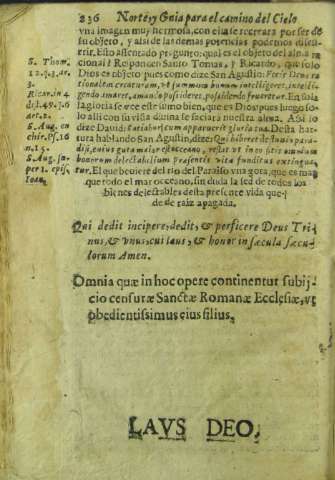 236 Norte, y Guia para el camino del Cielo
vna imagen muy hermosa, con ella se recreara por ser de
su objeto, y assi de las demas potencias podemos discu-
rrir. Esto assentado pregunto: qual es el objeto del alma ra-
cional? Responden Santo Tomas, y Ricardo, que solo
Dios es objeto pues como dize San Agustin: Fecit Deus ra-
tionalem creaturam, ut summum bonum intelligeret, inteli-
gendo amaret, amando possideret, possidendo frueretur. En sola
la gloria se vee este sumo bien, que es Dios; pues luego so-
lo alli con su vista diuina se saciara nuestra alma. Assi lo
dize Dauid: Satiabor cum apparuerit gloria tua. Desta har-
tura hablando San Agustin, dize: Qui biberet de fluuio para-
disi, cuius gutta maior est occeano, restat vt in eo sitis mundum
bonorum delectabilium presentis vita funditus extingue
tur. El que beuiere del rio del Paraiso vna gota, que es mas
que todo el mar oceano, sin duda la sed de todos los
bienes delectables desta presente vida que-
de de raiz apagada.
S. Thom.
1 2. q. 3. ar.
3
Ricar. in 4
d. 49. q. 6
ar. 2.
S. Aug. en
chir. Ps. 16
n. 15.
S. Aug. su-
per 1. epist.
Ioan.
Qui dedit incipere, dedit, & perficere Deus Tri-
nus, & vnus, cui laus, & honor in sæcula sæcu-
lorum Amen.
Omnia quæ in hoc opere continentur subij-
cio censuræ Sanctæ Romanæ Ecclesiæ, vt
obedientissimus eius filius.
LAVS DEO.